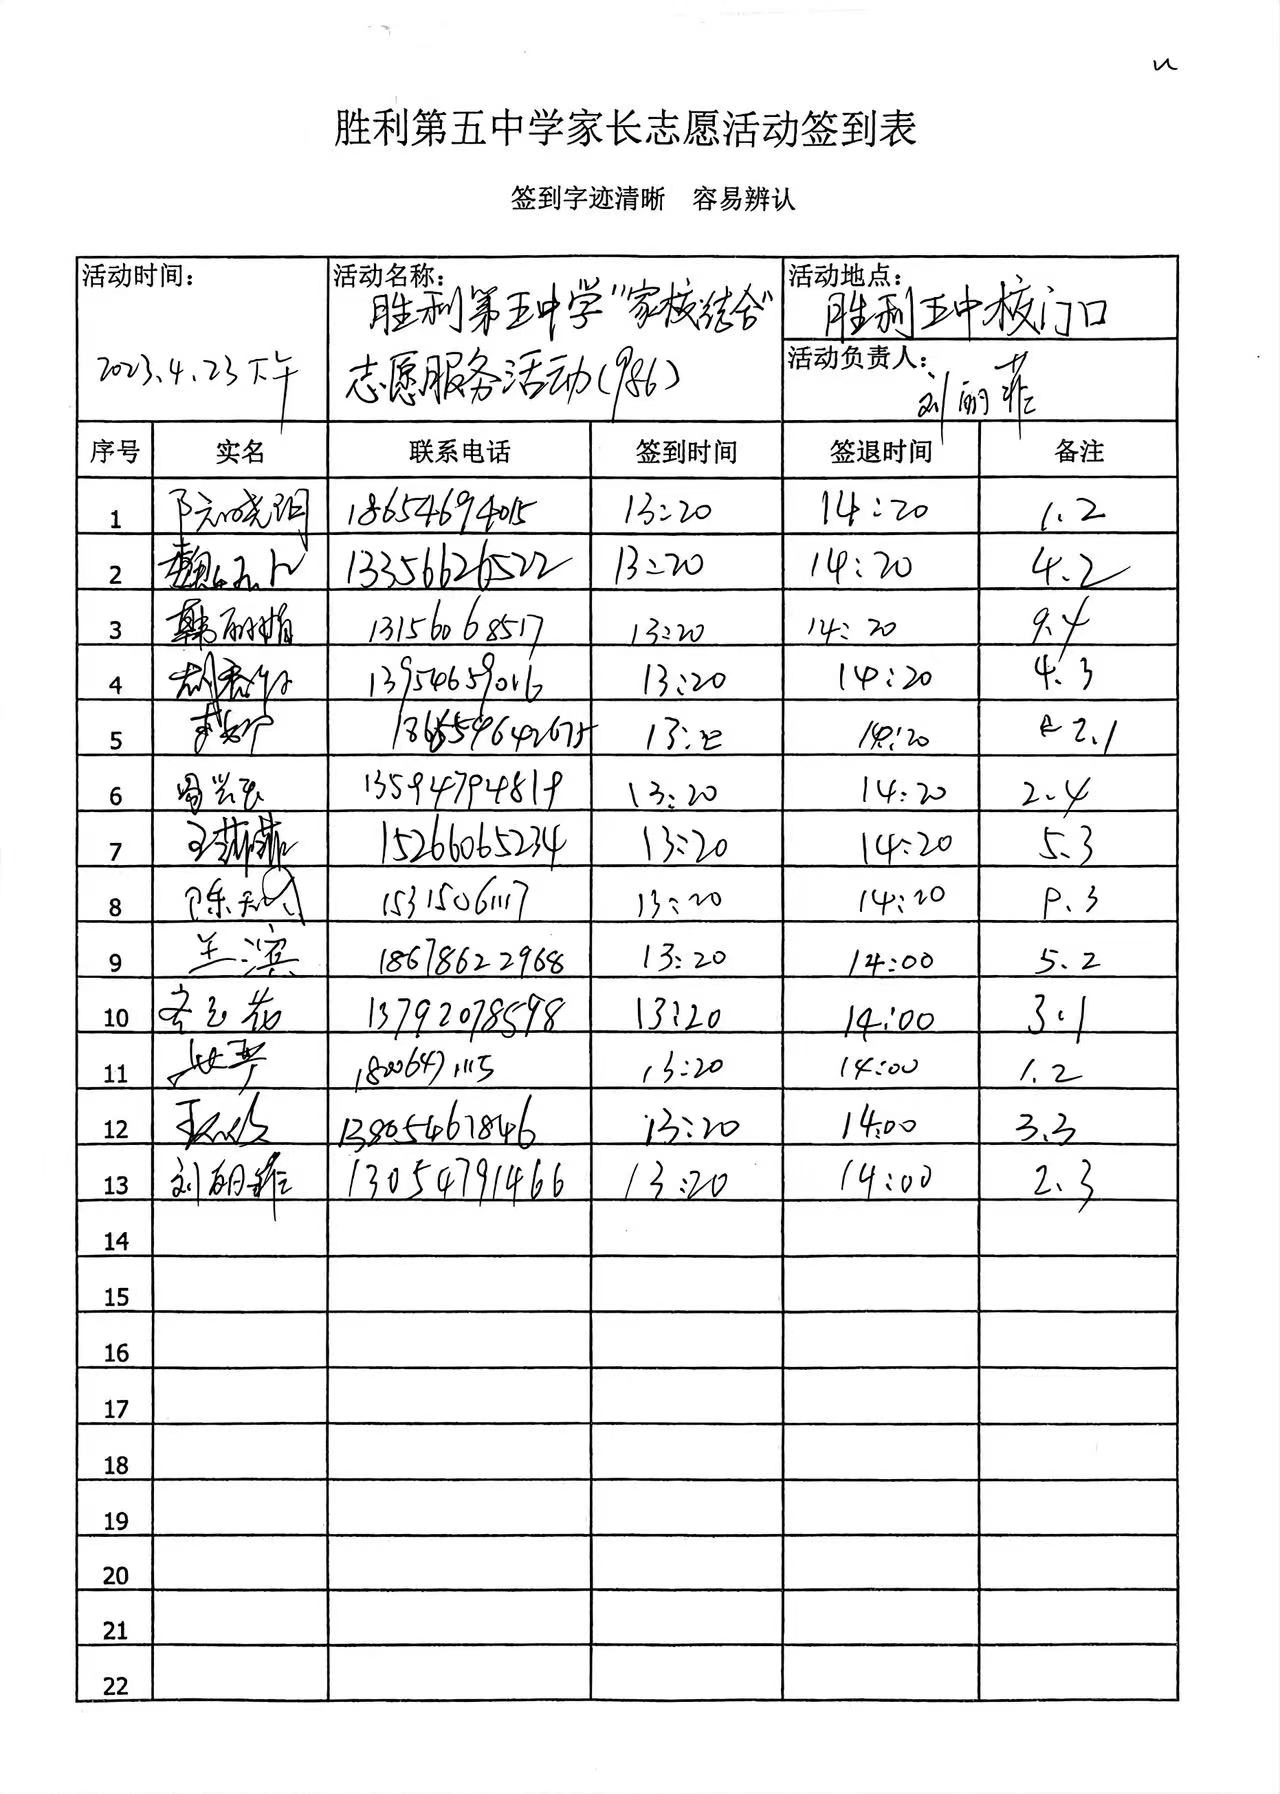 胜利第五中学家长志愿活动签到表
签到字迹清晰 容易辨认
活动时间: 2023.4.23下午
活动名称: 胜利第五中学"家校结合"
志愿服务活动(986)
活动地点: 胜利五中校门口
活动负责人: 刘丽菲
序号 实名 联系电话 签到时间 签退时间 备注
1 18654694015 13:20 14:20 1.2
2 13356626522 13:20 14:20 4.2
3 韩丽娟 13156068517 13:20 14:20 9.4
4 13954659016 13:20 14:20 4.3
5 13: 14:20 2.1
6 13594794819 13:20 14:20 2.4
7 王菲菲 15266065234 13:20 14:20 5.3
8 陈 15315061117 13:20 14:20 .3
9 兰滨 18678622968 13:20 14:00 5.2
10 13792078598 13:20 14:00 3.1
11 18006471115 13:20 14:00 1.2
12 王 13805467846 13:20 14:00 3.3
13 刘丽菲 13054791466 13:20 14:00 2.3
14
15
16
17
18
19
20
21
22